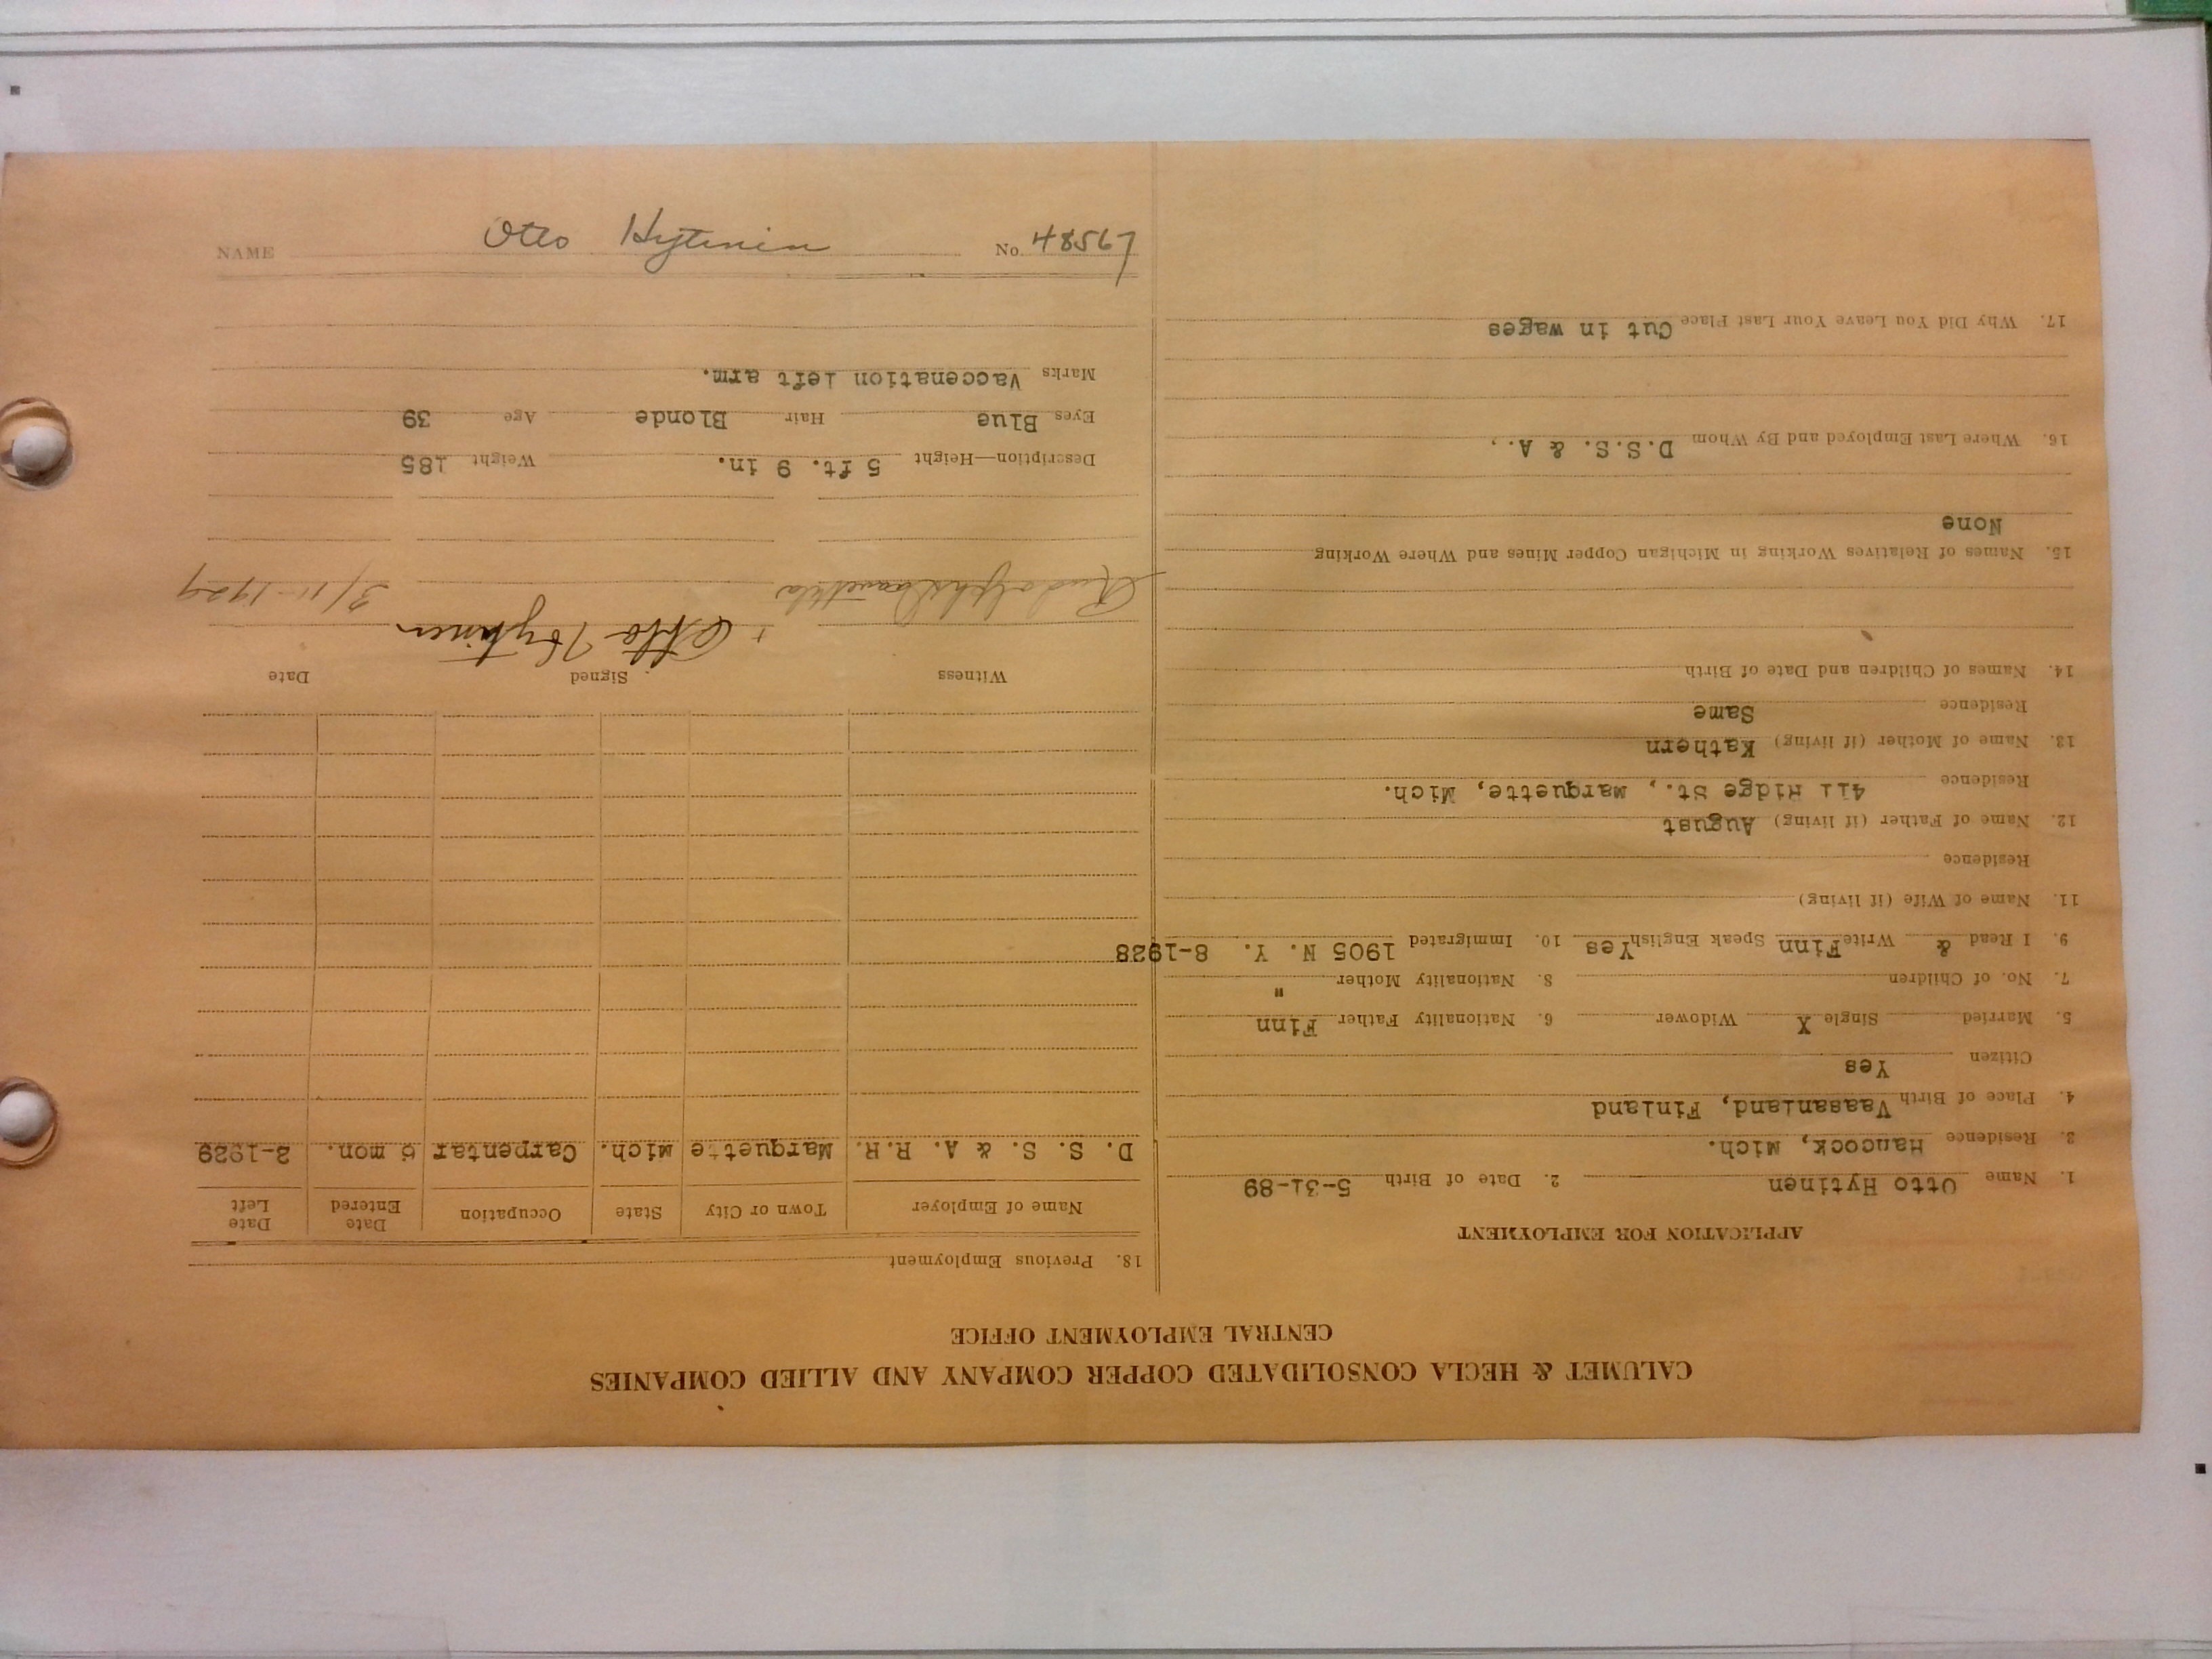 CALUMET & HECLA CONSOLIDATED COPPER COMPANY AND ALLIED COMPANIES
CENTRAL EMPLOYMENT OFFICE
APPLICATION FOR EMPLOYMENT
1. Name Otto Hytinen 2. Date of Birth 5-31-89
3. Residence Hancock, Mich.
4. Place of Birth Vaasanland, Finland
Citizen Yes
5. Married Single X Widower 6. Nationality Father Finn
7. No. of Children 8. Nationality Mother "
9. I Read & Write Finn Speak English Yes 10. Immigrated 1905 N. Y. 8-1928
11. Name of Wife (if living)
Residence
12. Name of Father (if living) August
Residence 411 Ridge St., Marquette, Mich.
13. Name of Mother (if living) Kathern
Residence Same
14. Names of Children and Date of Birth
15. Names of Relatives Working in Michigan Copper Mines and Where Working
None
16. Where Last Employed and By Whom D.S.S. & A.,
17. Why Did You Leave Your Last Place Cut in wages
18. Previous Employment
Name of Employer Town or City State Occupation Date Entered Date Left
D. S. S. & A. R.R. Marquette Mich. Carpentar 6 mon. 2-1929
Witness Signed Date
+ Otto Hytinen 3/11-1929
Description—Height 5 ft. 9 in. Weight 185
Eyes Blue Hair Blonde Age 39
Marks Vaccenation left arm.
NAME Otto Hytinin No. 48567